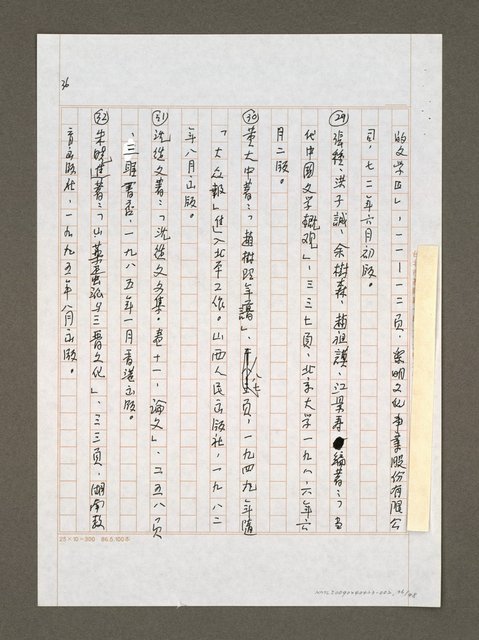 的文學』」,一一—一二頁,黎明文化事業股份有限公
司,七二年六月初版。
㉙張鍾、洪子誠、佘樹森、趙祖謨、江景壽編著:「當
代中國文學概觀」、三三七頁、北京大學一九八六年六
月二版。
㉚黃大中著:「趙樹理年譜」、八七頁,一九四九年隨
「大眾報」進入北平工作。山西人民出版社,一九八二
年八月出版。
㉛沈從文著:「沈從文文集。卷十一,論文」、二五八頁
、三聯書店,一九八五年一月香港出版。
㉜朱曉進著:「山藥蛋派與三晉文化」、三三頁,湖南教
育出版社,一九九五年八月出版。
36
25×10=300 86.5.100本
NMTL20090400423-002, 36/48